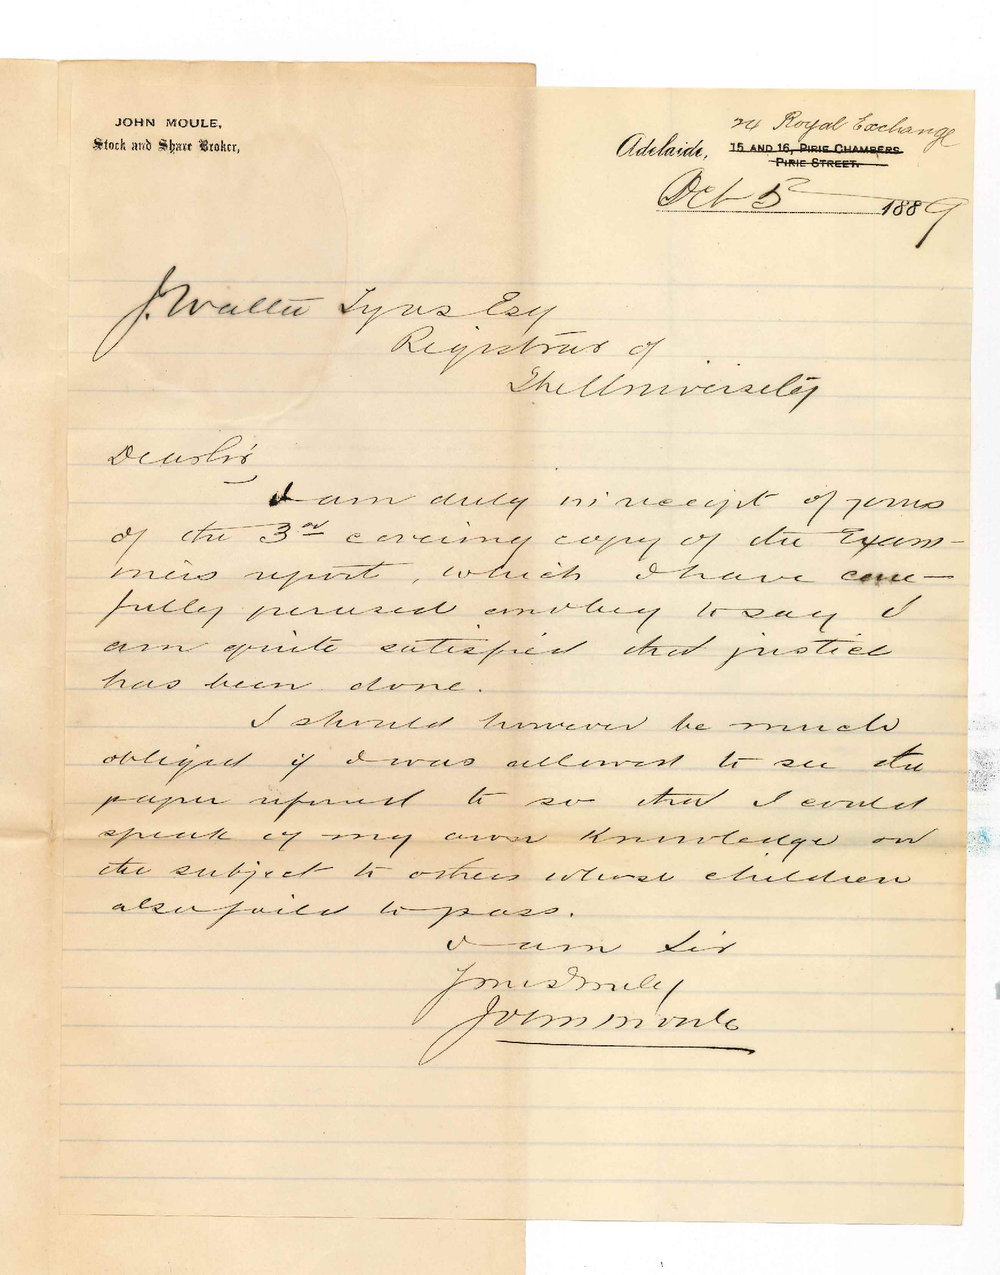 JOHN MOULE,
Stock and Share Broker,
24 Royal Exchange
Adelaide, 15 AND 16, PIRIE CHAMBERS
PIRIE STREET.
Oct 5 1889
J. Walter Tyas Esq
Registrar of
The University
Dear Sir
I am duly in receipt of yours
of the 3rd covering copy of the Exam-
iners report, which I have care-
fully perused and beg to say I
am quite satisfied that justice
has been done.
I should however be much
obliged if I was allowed to see the
paper referred to so that I could
speak of my own knowledge on
the subject to others whose children
also faild to pass.
I am Sir
Yours Truly
John Moule